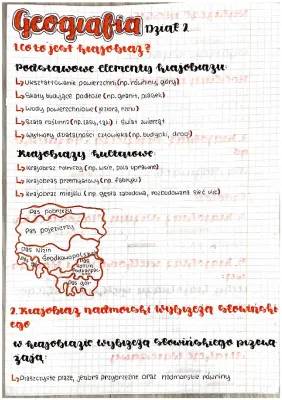 Geografia Dział 2
1. Co to jest krajobraz?
Podstawowe elementy krajobrazu:
↳ Ukształtowanie powierzchni (np. równiny, góry)
↳ Skały budujące podłoże (np. granit, piasek)
↳ Wody powierzchniowe (jeziora, rzeki)
↳ Szata roślinna (np. lasy, łąki) i świat zwierząt
↳ Wytwory działalności człowieka (np. budynki, drogi)
Krajobrazy kulturowe:
↳ Krajobraz rolniczy (np. wsie, pola uprawne)
↳ Krajobraz przemysłowy (np. fabryki)
↳ Krajobraz miejski (np. gęsta zabudowa, rozbudowana sieć ulic)
Pas pobrzeży
Pas pojezierzy
Pas Nizin
Środkowopolskich
Pas wyżyn
Pas kotlin podkarpac.
Pas gór
2. Krajobraz nadmorski Wybrzeża Słowiński
ego
W krajobrazie Wybrzeża Słowińskiego przewa
żają:
↳ Piaszczyste plaże, jeziora przybrzeżne oraz nadmorskie równiny